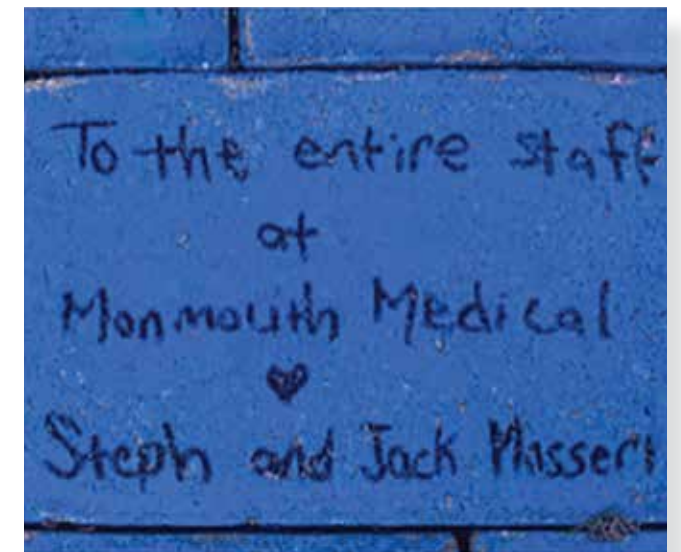 To the entire staff
at
Monmouth Medical
♥
Steph and Jack